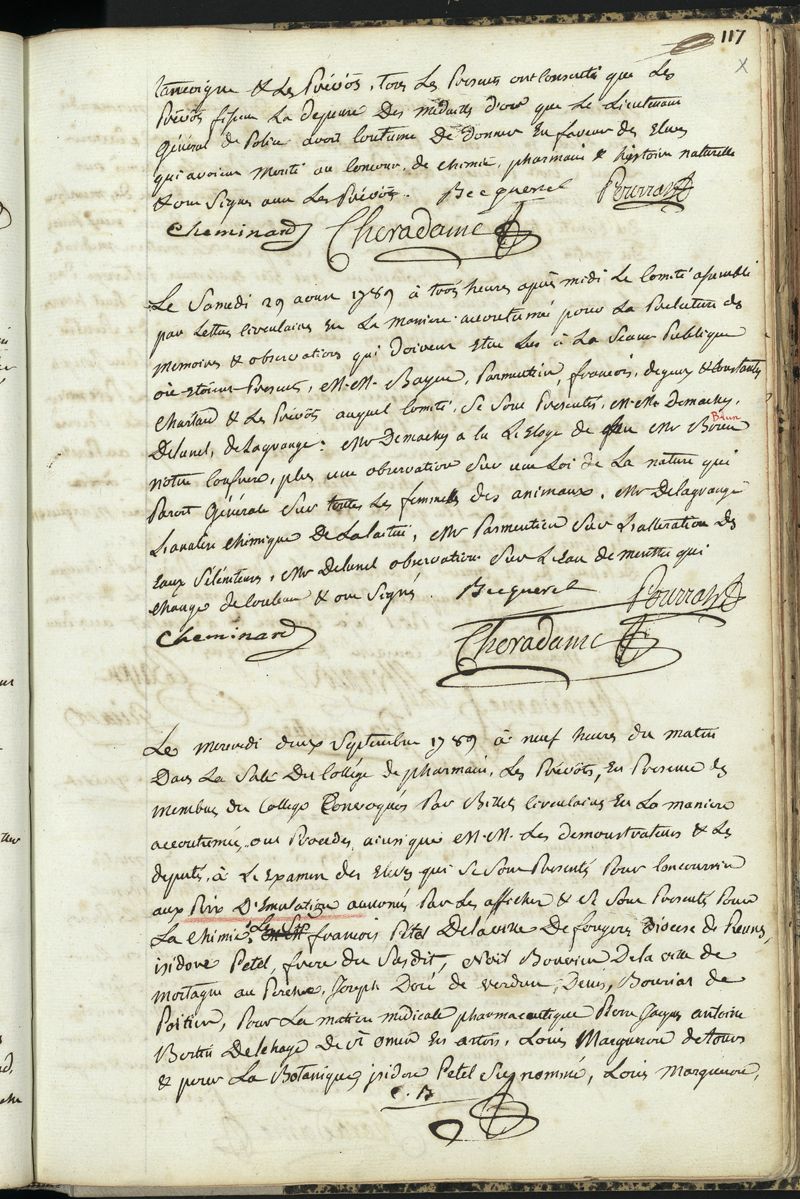 117
x
tancoigne & les Prévôts, tous les Presents ont consenti que les
Prévôts fissent la depense des médailles d'or que le Lieutenant
Général de Police avoit coutume de donner en faveur des Eleves
qui avoient merité au concours de chimie, pharmacie & histoire naturelle
& ont Signés avec les Prévôts. Becquerel Pourrat
Cheminard Cheradame
Le Samedi 29 aoust 1789 à trois heures après midi le Comité assemblé
par Lettres circulaires en la maniere accoutumée pour la Relecture des
memoires & observations qui doivent etre lus à la Seance Publique
où etoient Presents, M.M. Bayen, Parmentier, françois, deyeux & Constantz
Charlard & les Prévôts auquel Comité se sont Presentés, M.M. Demachy,
Brun
Delunel, delagrange. Mr Demachy a lu l'Eloge de Mr
notre Confrere, plus une observation sur une Loi de la nature qui
Paroit Générale sur toutes les femmelles des animaux. Mr Delagrange
L'analise chimique de la laitue, Mr Parmentier sur l'alteration des
Eaux Séléniteuses, Mr Delunel observations sur l'Eau de menthe qui
change de couleur & ont Signés. Becquerel Pourrat
Cheminard Cheradame
Le mercredi deux Septembre 1789 à neuf heures du matin
Dans la Sale du Collége de pharmacie, les Prévôts, en Presence des
membres du College Convoqués Par Billets circulaires en la maniere
accoutumée, ont Procedés, ainsi que M.M. les demonstrateurs & les
deputés, à l'Examen des Eleves qui se sont Presentés Pour concourir
aux Prix D'Emulation annoncés Par les affiches & se sont Presentés Pour
La Chimie, Les Srs françois Petel Delavine De fougeres Diocese de Rennes,
isidore Petel, frere du Susdit, Bouvier De la ville de
mortagne au Perche, Joseph Doré de verdun, Denis, Bouriat de
Poitiers, Pour la matiere médicale pharmaceutique Pierre Jacques antoine
Bertin Delehaye de St omer en artois, Louis Marqueron de tours
& pour la Botanique, isidore Petel Susnommé, Louis marqueron,
C. B